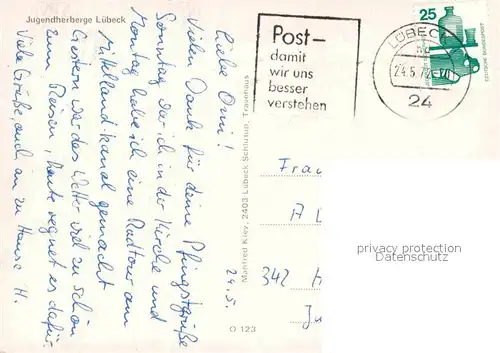 Jugendherberge Lübeck
24.5.
Liebe Omi!
Vielen Dank für deine Pfingstgrüße
Sonntag war ich in der Kirche und
Montag habe ich eine Radtour am
Mittellandkanal gemacht
Gestern war das Wetter viel zu schön
zum Reisen, heute regnet es dafür.
Viele Grüße, auch an zu Hause H.
Manfred Kiev, 2403 Lübeck Schlutup, Travehaus
O 123
Post–
damit
wir uns
besser
verstehen
LÜBECK
24.5.7
24
25
DEUTSCHE BUNDESPOST
Frau
342 H
privacy protection
Datenschutz